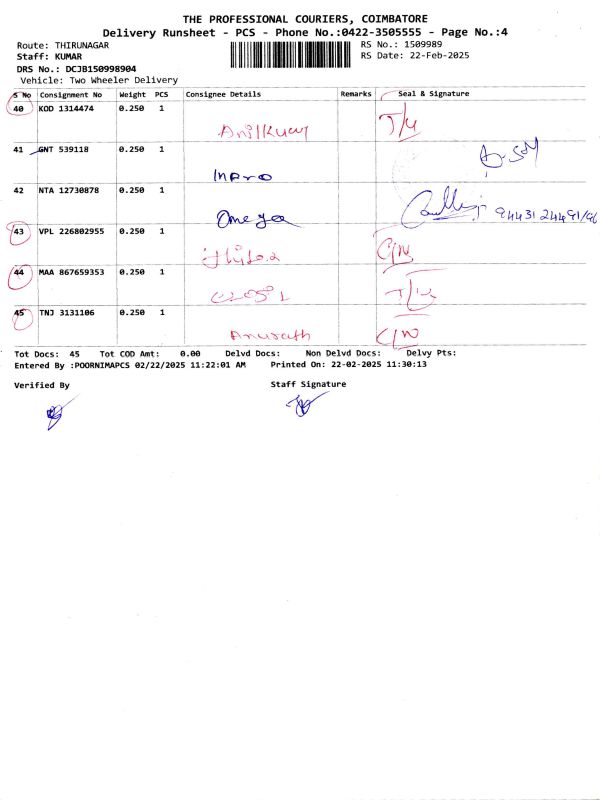 THE PROFESSIONAL COURIERS, COIMBATORE
Delivery Runsheet - PCS - Phone No.:0422-3505555 - Page No.:4
Route: THIRUNAGAR RS No.: 1509989
Staff: KUMAR RS Date: 22-Feb-2025
DRS No.: DCJB150998904
Vehicle: Two Wheeler Delivery
S No Consignment No Weight PCS Consignee Details Remarks Seal & Signature
40 KOD 1314474 0.250 1
Anilkumar
41 GNT 539118 0.250 1
Inpro
42 NTA 12730878 0.250 1
Omega 94431 24491/96
43 VPL 226802955 0.250 1
C/N
44 MAA 867659353 0.250 1
45 TNJ 3131106 0.250 1
Anurath C/N
Tot Docs: 45 Tot COD Amt: 0.00 Delvd Docs: Non Delvd Docs: Delvy Pts:
Entered By :POORNIMAPCS 02/22/2025 11:22:01 AM Printed On: 22-02-2025 11:30:13
Verified By Staff Signature